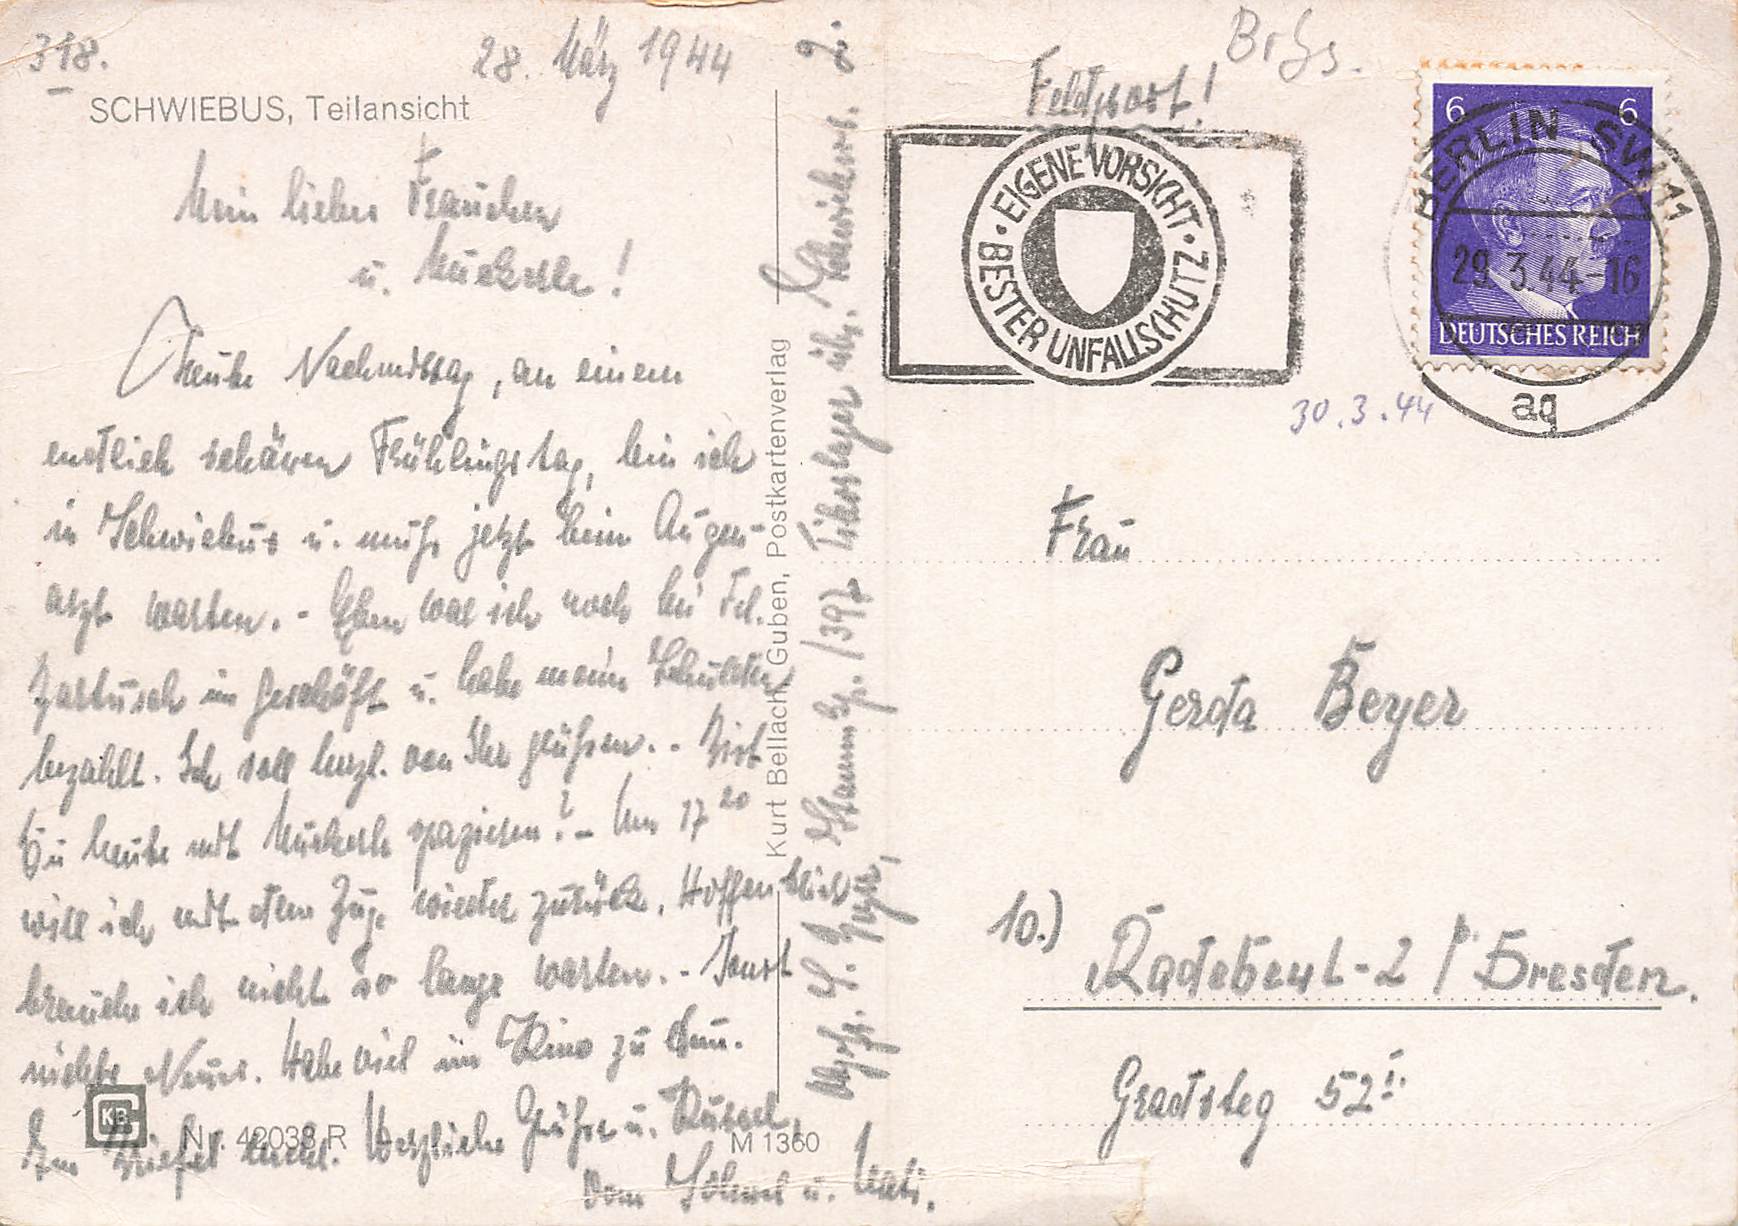 318.
28. März 1944
SCHWIEBUS, Teilansicht
Mein liebes Frauchen
u. Muckelle!
Heute Nachmittag, an einem
entlich schönen Frühlingstag, bin ich
in Schwiebus u. muß jetzt beim Augen-
arzt warten. - Eben war ich noch bei Frl.
im Geschäft u. habe meine Schulden
bezahlt. Ich soll herzl. von Ihr grüßen. - Bist
Du heute mit spazieren? - Um 17 20
will ich mit dem Zug wieder zurück. Hoffentlich
brauche ich nicht so lange warten. - Sonst
nichts Neues. Habe viel im Kino zu tun.
Im Brief mehr. Herzliche Grüße u. Küssel,
vom u. Vati.
KB
Nr. 42038 R
M 1360
Kurt Bellach, Guben, Postkartenverlag
Beyer, Stammkp. /397
Schwiebus.
Feldpost!
BrGs.
EIGENE VORSICHT · BESTER UNFALLSCHUTZ ·
6 6
DEUTSCHES REICH
BERLIN SW 11
29.3.44-16
aq
30.3.44
Frau
Gerda Beyer
10.) Radebeul-2 / Dresden.
Gradsteg 52 I.